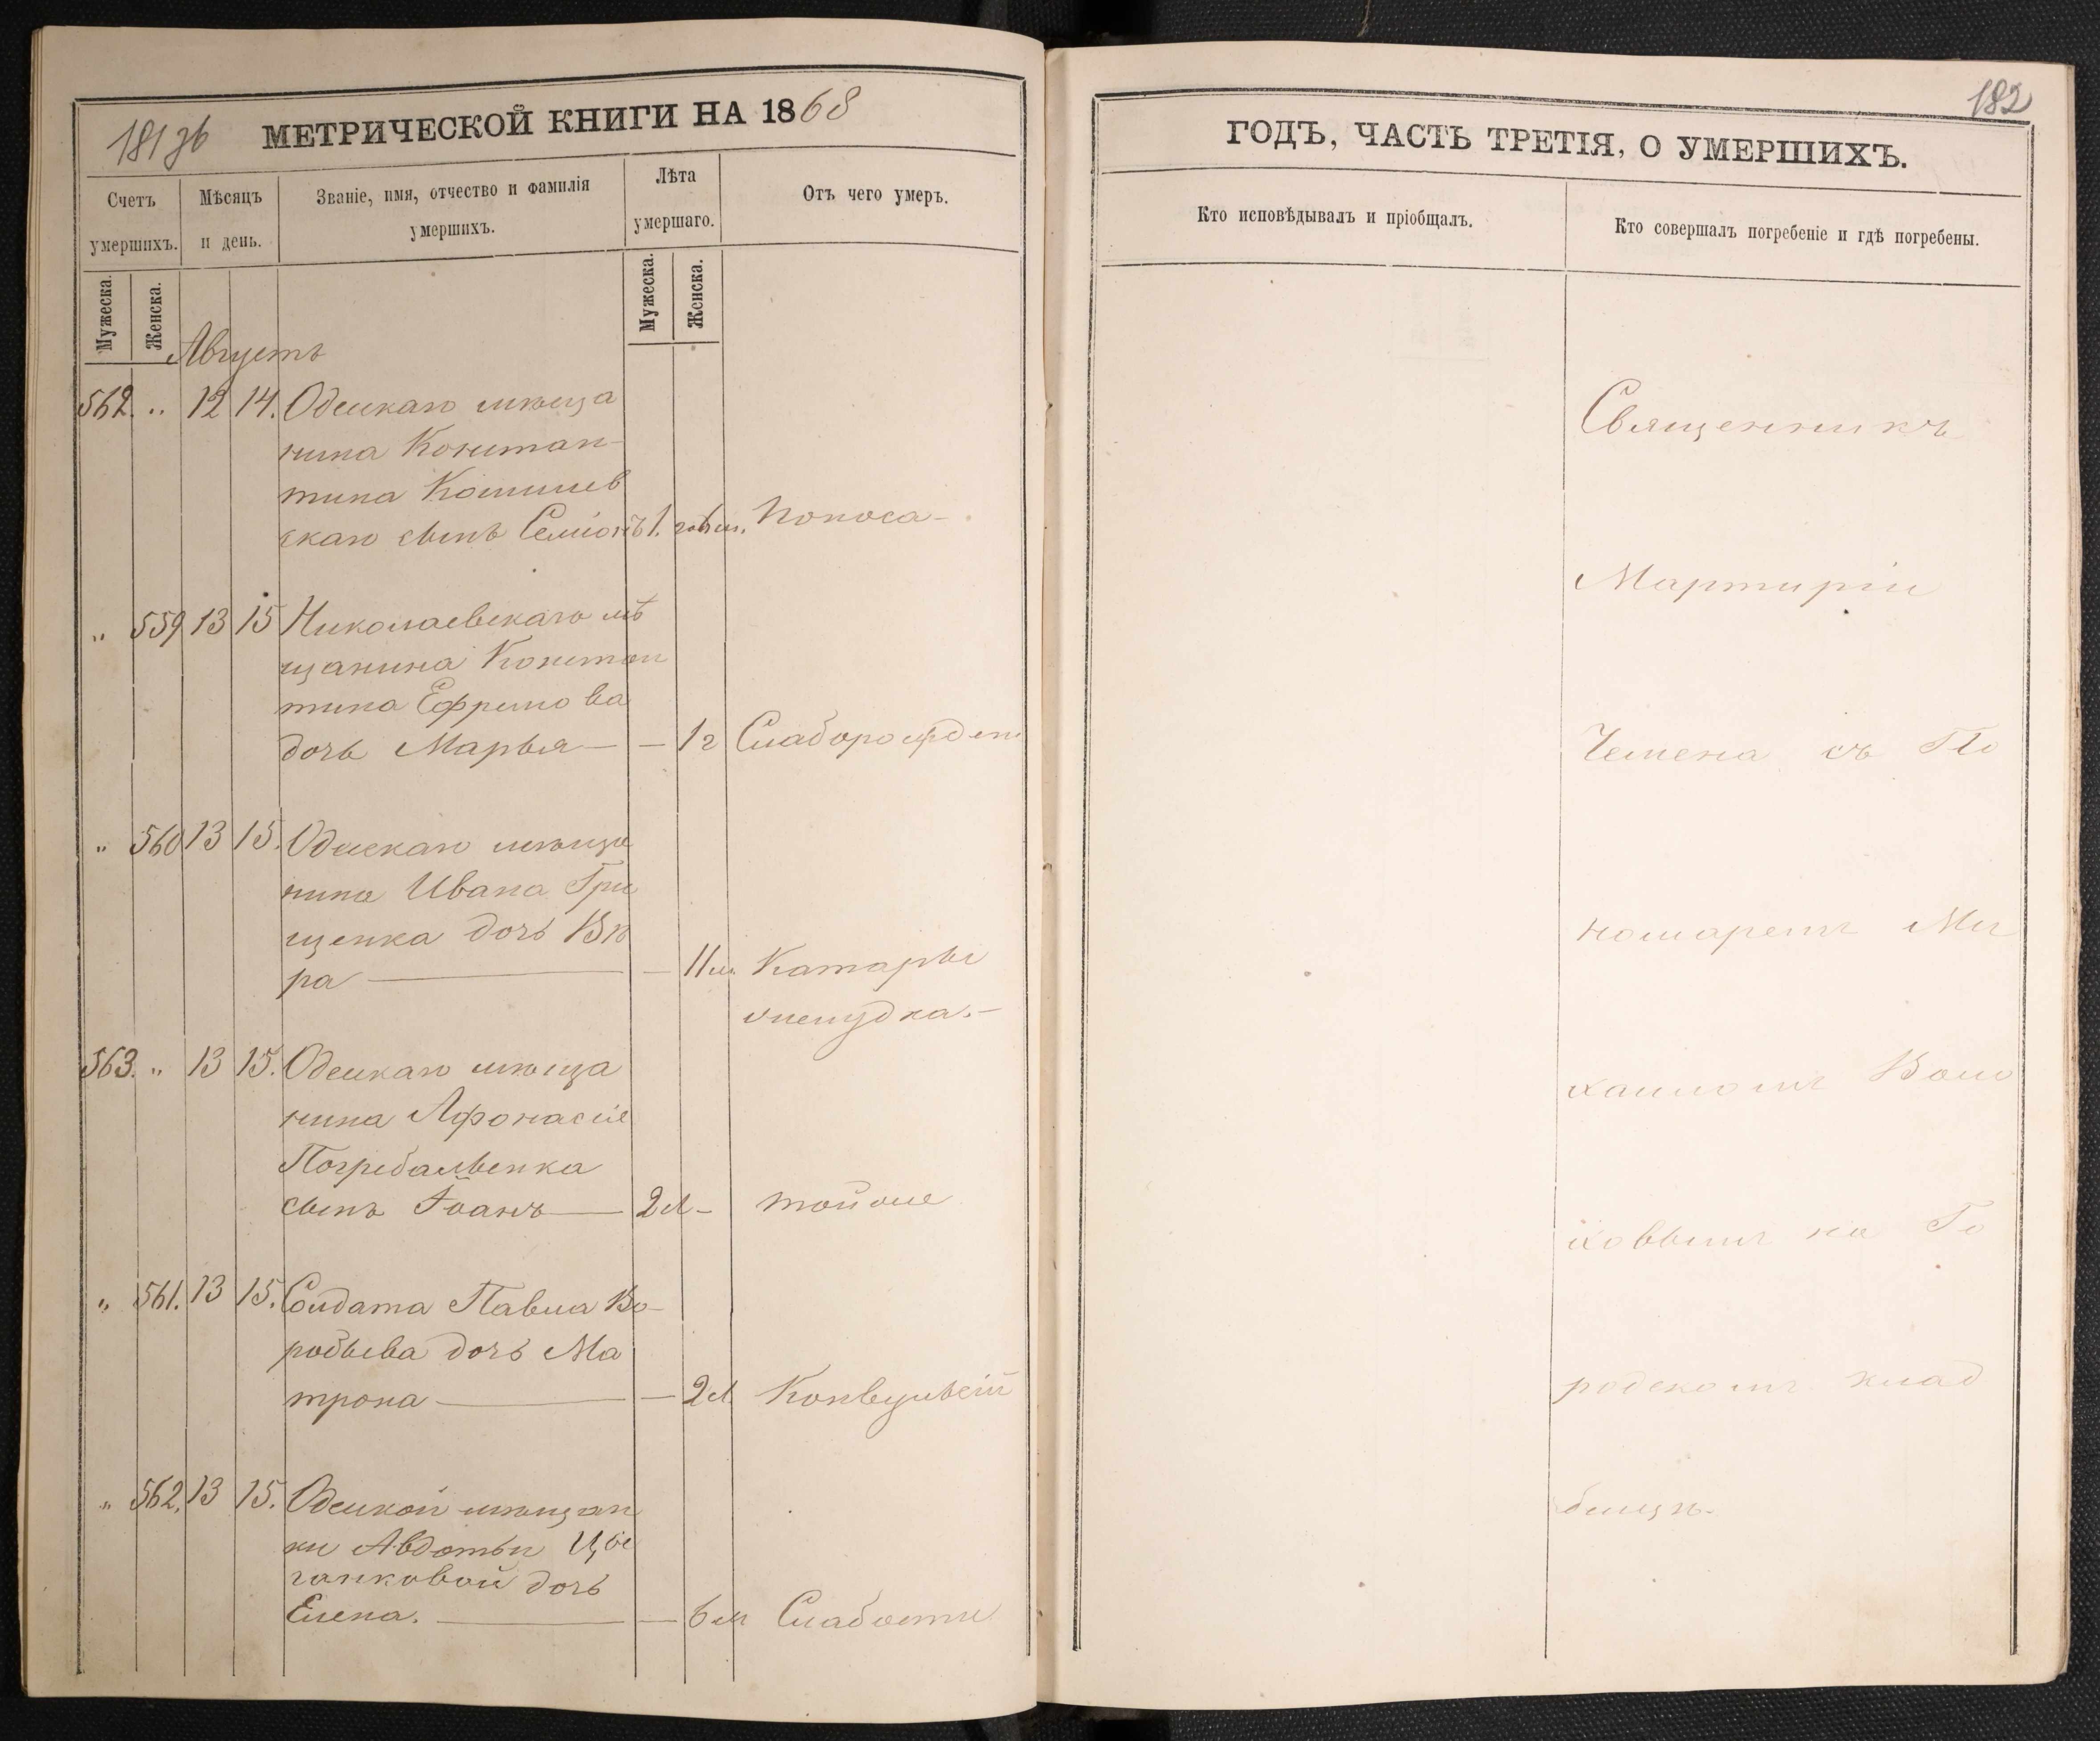 181 зв
МЕТРИЧЕСКОЙ КНИГИ НА 1868
Счетъ умершихъ.
Мѣсяцъ и день.
Званіе, имя, отчество и фамилія умершихъ.
Лѣта умершаго.
Отъ чего умеръ.
Мужеска.
Женска.
Мужеска.
Женска.
Августъ
562. " 12 14. Одескаго мѣща
нина Констан-
тина
скаго сынъ Семіонъ 1. Поноса-
" 559 13 15 Николаевскаго мѣ
щанина Констан
тина Ефримова
дочь Марья — — 1 г Слаборожден
" 560 13 15. Одескаго мѣща
нина Ивана Гри
щенка дочь Вѣ
ра — — 11 м. Катарръ
желудка.-
563. " 13 15. Одескаго мѣща
нина Афонасія
Погребальенка
сынъ Іоанъ — 2 л - тойже
" 561. 13 15. Солдата Павла Во-
робьева дочь Ма
трона — — 2 л. Конвульсій
" 562. 13 15. Одеской мѣщан
ки Авдотьи Цы
ганковой дочь
Елена. — — 6 м Слабости
182
ГОДЪ, ЧАСТЬ ТРЕТІЯ, О УМЕРШИХЪ.
Кто исповѣдывалъ и пріобщалъ.
Кто совершалъ погребеніе и гдѣ погребены.
Священникъ
Мартирій
Чемена съ По
номаремъ Ми
хаиломъ Воло
ховымъ на Го
родскомъ клад
бищѣ.